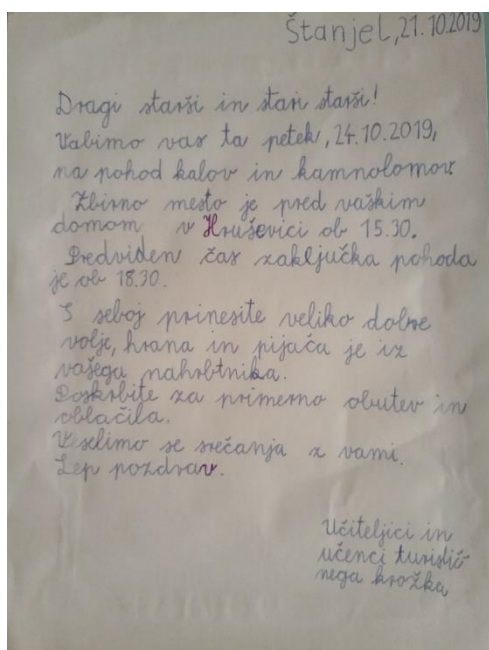 Štanjel, 21.10.2019
Dragi starši in stari starši!
Vabimo vas ta petek, 24.10.2019,
na pohod kalov in kamnolomov.
Zbirno mesto je pred vaškim
domom v Hruševici ob 15.30.
Predviden čas zaključka pohoda
je ob 18.30.
S seboj prinesite veliko dobre
volje, hrana in pijača je iz
vašega nahrbtnika.
Poskrbite za primerno obutev in
oblačila.
Veselimo se srečanja z vami.
Lep pozdrav.
Učiteljici in
učenci turistič-
nega krožka